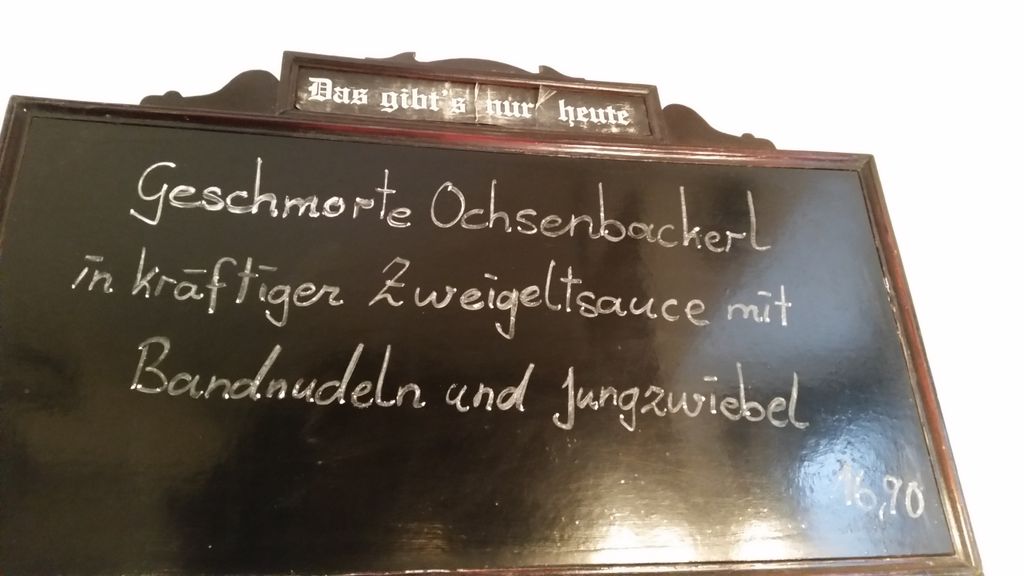 Das gibt's nur heute
Geschmorte Ochsenbackerl
in kräftiger Zweigeltsauce mit
Bandnudeln und Jungzwiebel
16,90